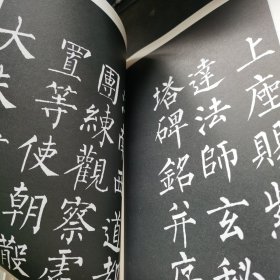 上座賜紫
達法師玄秘
塔碑銘并序
西道都
團練觀察處
置等使朝散
大